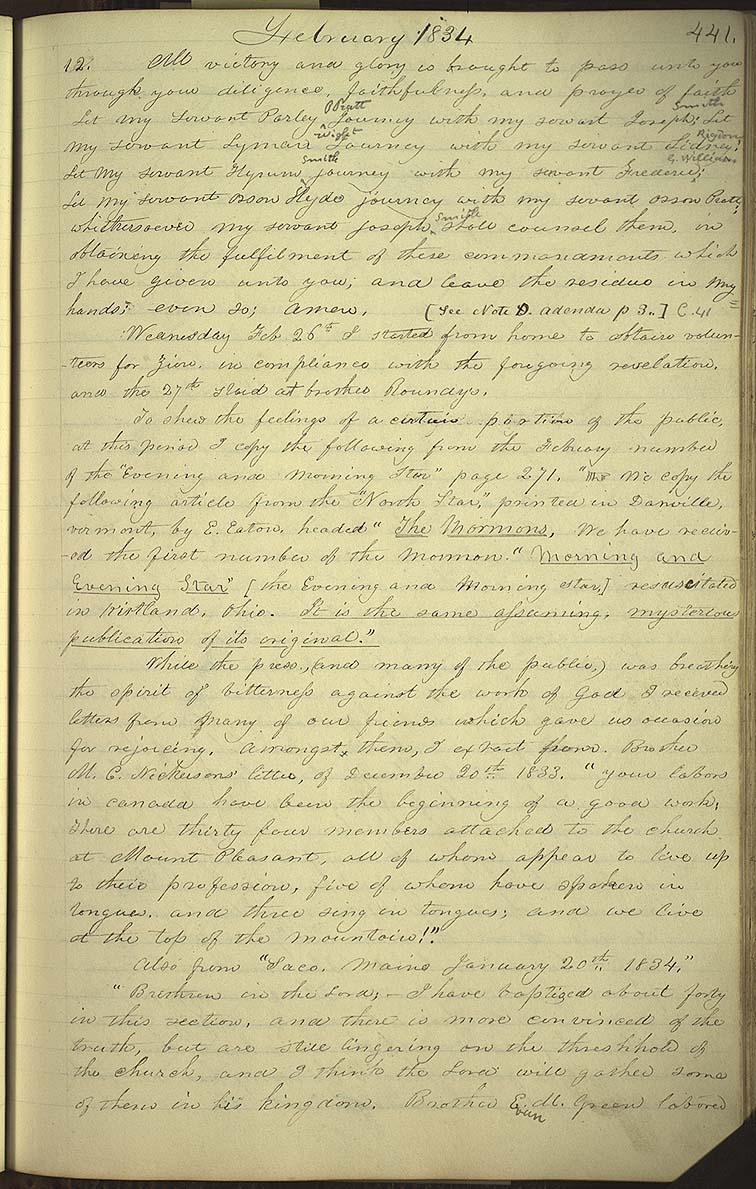 February 1834
441.
12. All victory and glory is brought to pass unto you
through your diligence, faithfulness, and prayer of faith
Let my servant Parley P Pratt Journey with my servant Joseph; Smith Let
my servant Lyman Wight Journey with my servant Sidney; Rigdon
Let my servant Hyrum Smith journey with my servant Frederic; G. Williams
Let my servant Orson Hyde journey with my servant Orson Pratt;
whithersoever my servant Joseph, Smith shall counsel them, in
obtaining the fulfilment of these commandments which
I have given unto you; and leave the residue in my
hands; even so; amen. [See Note D. adenda p 3..] C. 41
Wednesday Feb 26th I started from home to obtain volun-
-teers for Zion, in compliance with the foregoing revelation,
and the 27th staid at brother Roundy's.
To shew the feelings of a certain portion of the public,
at this period I copy the following from the February number
of the "Evening and Morning Star" page 271. "We copy the
following article from the "North Star," printed in Danville,
vermont, by E. Eaton, headed "The Mormons, We have receiv-
-ed the first number of the Mormon "Morning and
Evening Star" [the Evening and Morning star,] resuscitated
in Kirtland, Ohio. It is the same assuming, mysterious
publication of its original."
While the press, (and many of the public,) was breathing
the spirit of bitterness against the work of God I received
letters from many of our friends which gave us occasion
for rejoicing. Amongst them, I extract from. Brother
M. C. Nickersons' letter, of December 20th 1833. "your labors
in canada have been the beginning of a good work;
there are thirty four members attached to the church
at Mount Pleasant, all of whom appear to live up
to their profession, five of whom have spoken in
tongues, and three sing in tongues; and we live
at the top of the mountain!"
Also from "Saco, Maine January 20th 1834."
"Brethren in the Lord; - I have baptized about forty
in this section, and there is more convinced of the
truth, but are still lingering on the threshhold of
the church, and I think the Lord will gather some
of them in his kingdom. Brother Evan. M. Green labored